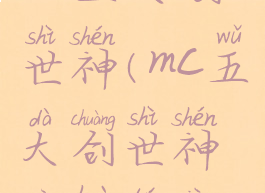 shì shén wǔ
世神(mc五
dà chuàng shì shén
大创世神